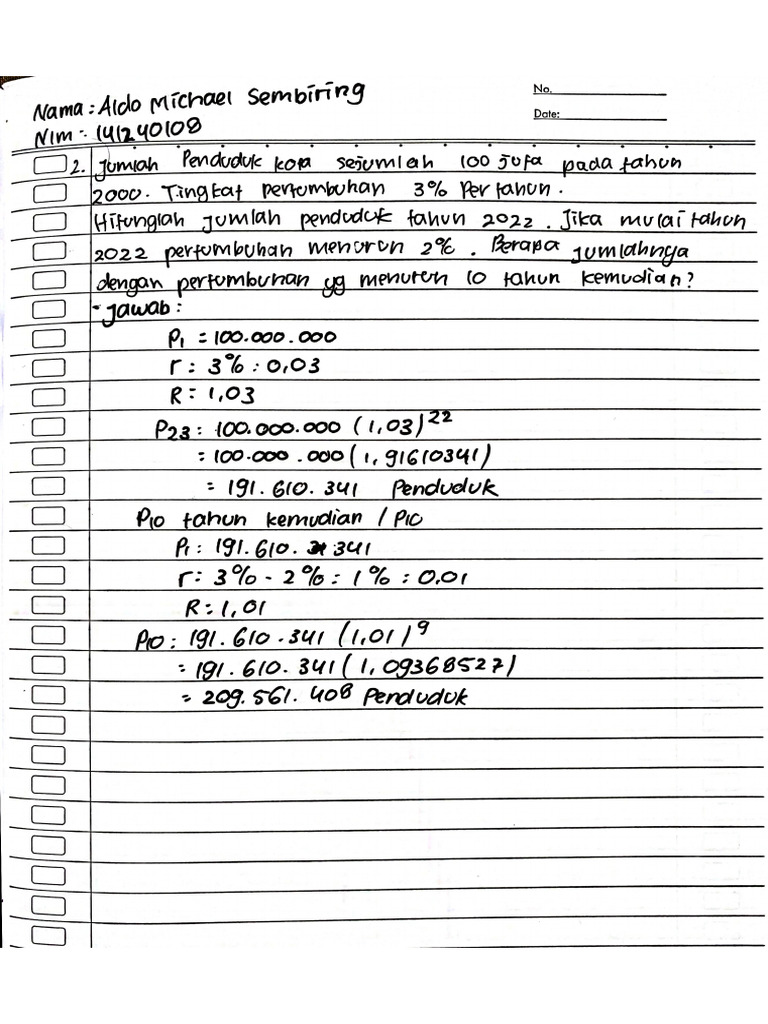 No.
Nama : Aldo Michael Sembiring
Date:
NIM : 141240108
2. Jumlah Penduduk kota sejumlah 100 juta pada tahun
2000. Tingkat pertumbuhan 3% Per tahun.
Hitunglah jumlah penduduk tahun 2022. Jika mulai tahun
2022 pertumbuhan menurun 2%. Berapa jumlahnya
dengan pertumbuhan yg menurun 10 tahun kemudian?
- Jawab :
P1 = 100.000.000
r : 3% : 0,03
R = 1,03
P23 : 100.000.000 (1,03)^22
= 100.000.000 (1,91610341)
= 191.610.341 Penduduk
P10 tahun kemudian / P10
P1 : 191.610.341
r = 3% - 2% = 1% : 0,01
R = 1,01
P10 : 191.610.341 (1,01)^9
= 191.610.341 (1,09368527)
= 209.561.408 Penduduk